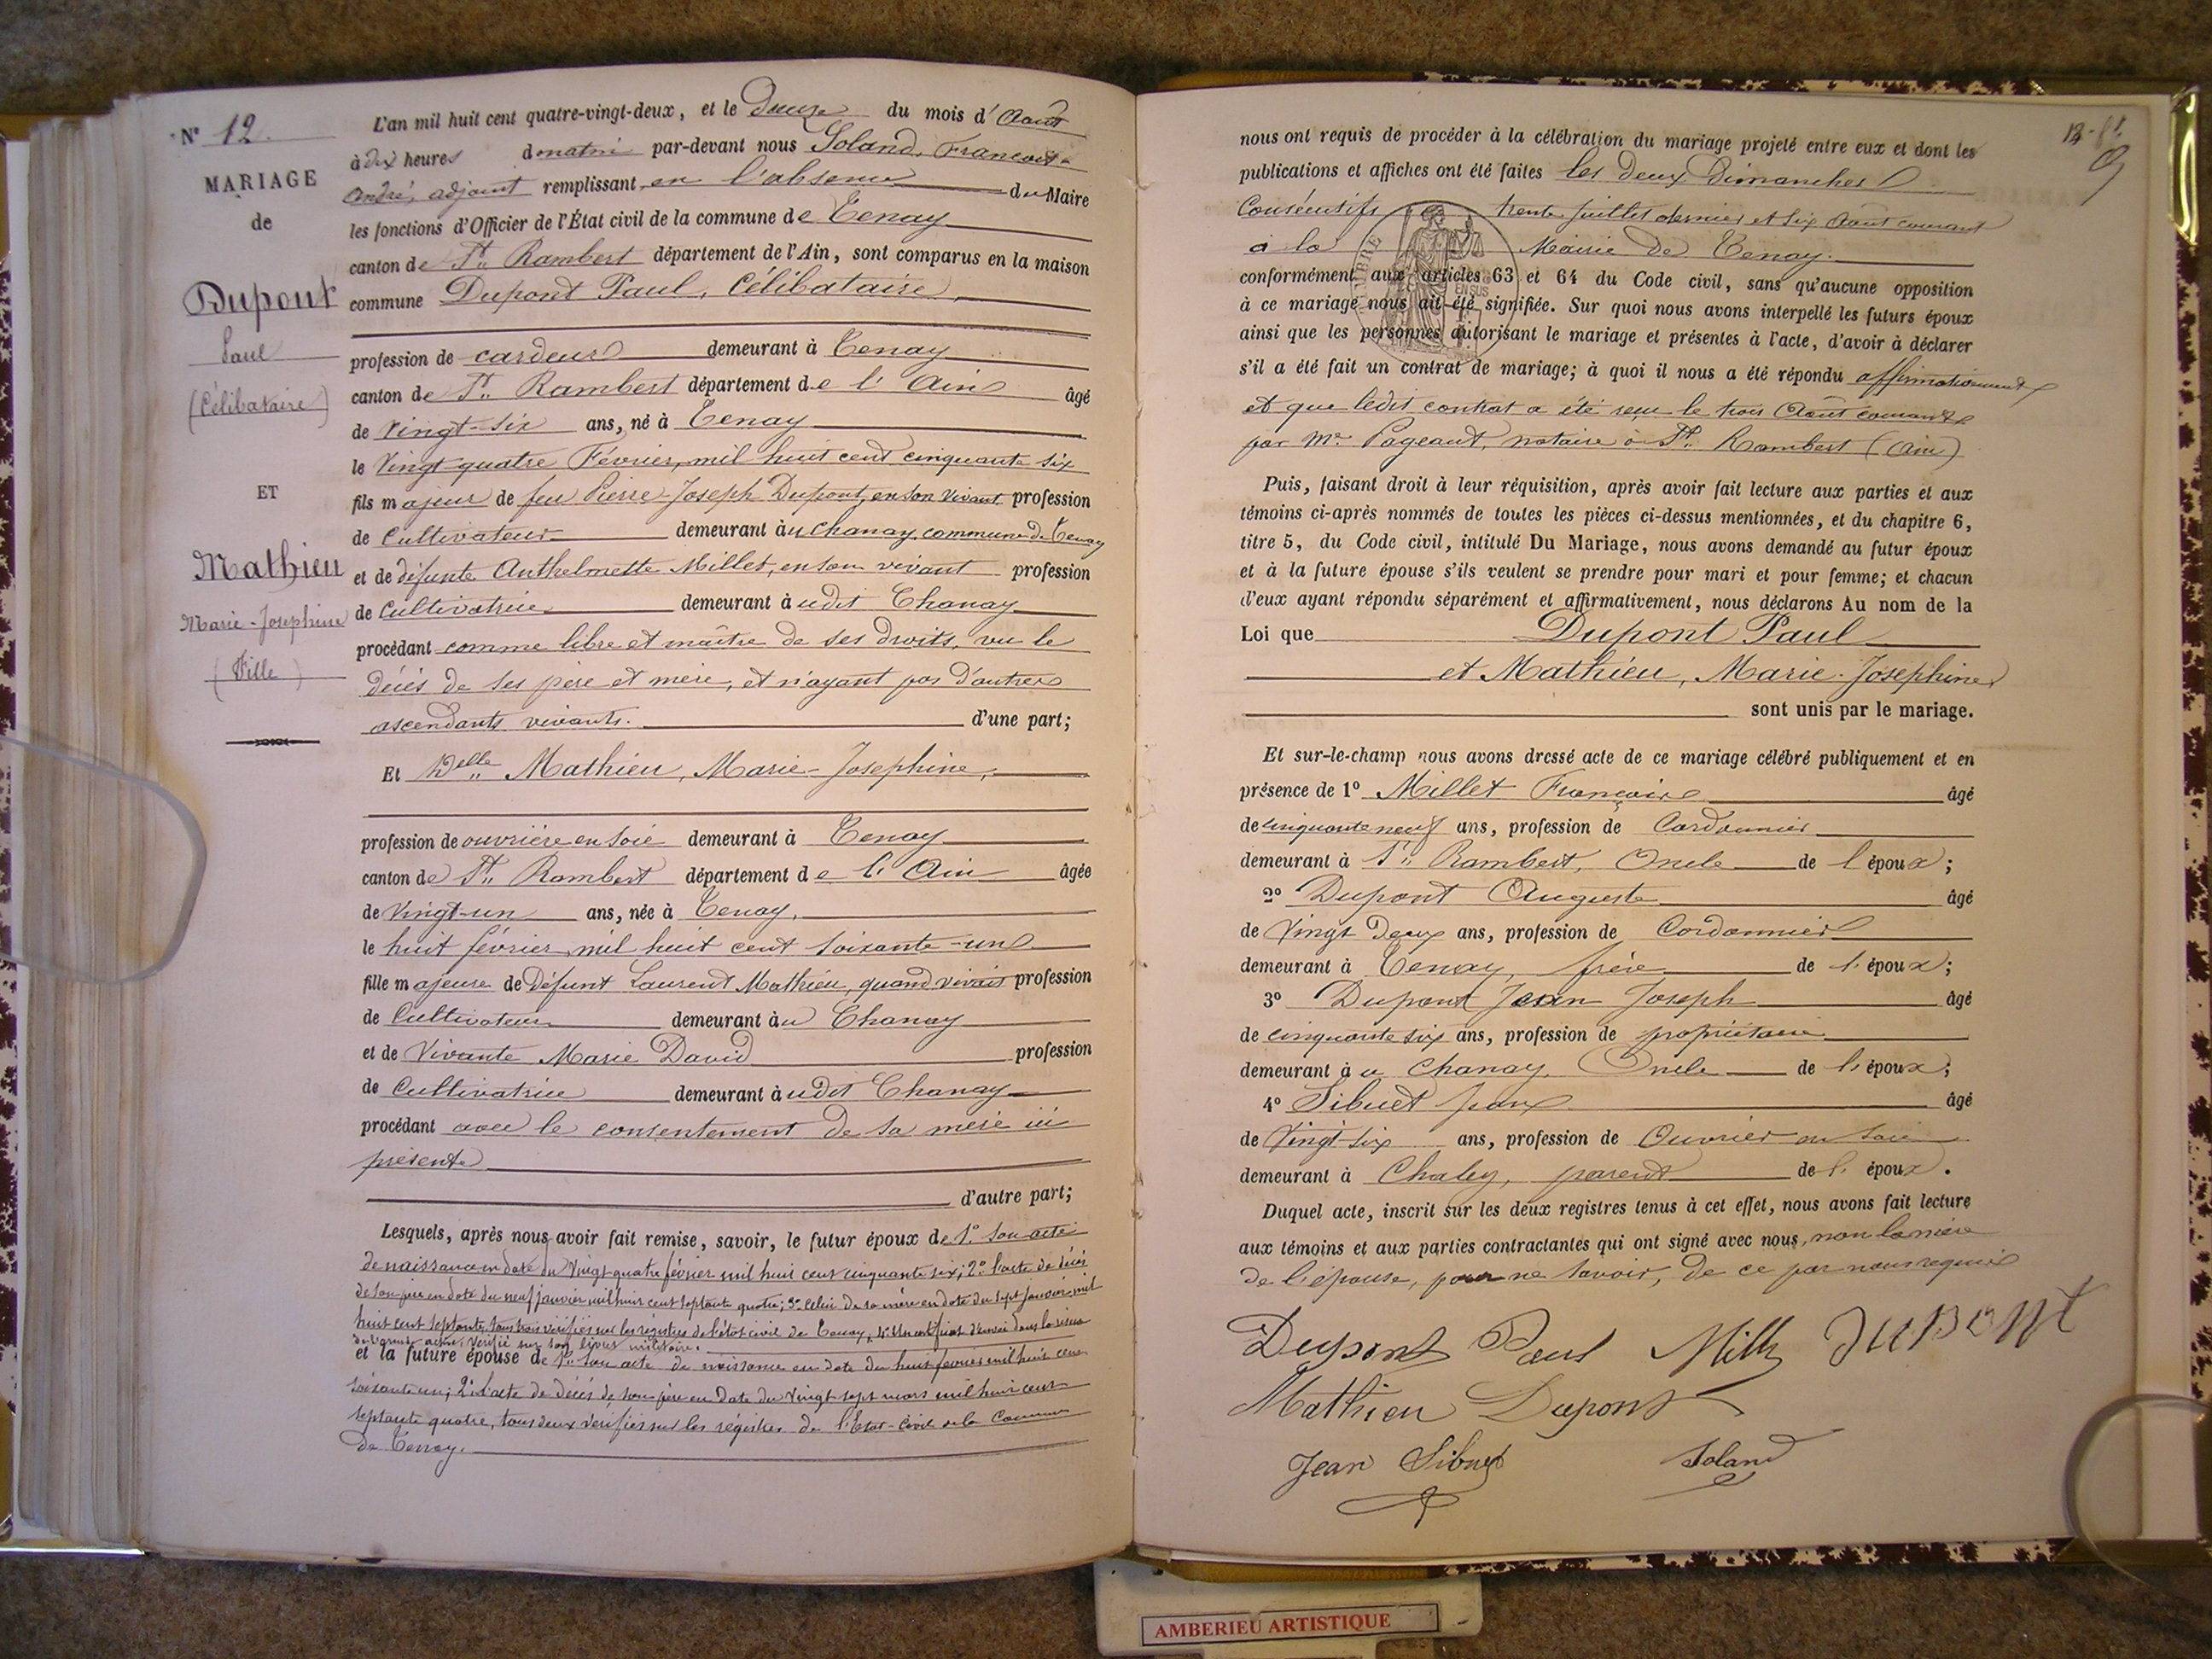 N° 12.
MARIAGE
de
Dupont
Paul
(Célibataire)
ET
Mathieu
Marie-Josephine
(Fille)
L'an mil huit cent quatre-vingt-deux, et le douze du mois d'Août
à dix heures du matin par-devant nous Soland, François-
André, adjoint remplissant en l'absence du Maire
les fonctions d'Officier de l'État civil de la commune de Tenay
canton de St Rambert département de l'Ain, sont comparus en la maison
commune Dupont Paul, Célibataire,
profession de cardeur demeurant à Tenay
canton de St Rambert département de l'Ain âgé
de vingt-six ans, né à Tenay
le vingt quatre Février, mil huit cent cinquante six
fils majeur de feu Pierre-Joseph Dupont, en son vivant profession
de Cultivateur demeurant àu Chanay, commune de Tenay
et de défunte Anthelmette Millet, en son vivant profession
de Cultivatrice demeurant à udit Chanay
procédant comme libre et maître de ses droits, vu le
décès de ses père et mère, et n'ayant pas d'autres
ascendants vivants. d'une part;
Et Delle Mathieu, Marie-Josephine,
profession de ouvrière en soie demeurant à Tenay
canton de St Rambert département de l'Ain âgée
de vingt-un ans, née à Tenay,
le huit février mil huit cent soixante-un
fille majeure de Défunt Laurent Mathieu, quand vivait profession
de Cultivateur demeurant àu Chanay
et de Vivante Marie David profession
de Cultivatrice demeurant à udit Chanay
procédant avec le consentement de sa mère ici
présente
d'autre part;
Lesquels, après nous avoir fait remise, savoir, le futur époux de 1° son acte
de naissance en date du Vingt quatre février mil huit cent cinquante six; 2° l'acte de décès
de son père en date du neuf janvier mil huit cent septante quatre; 3° celui de sa mère en date du sept janvier mil
huit cent septante, tous trois vérifiés sur les régistres de l'état civil de Tenay, 4° Un certificat d'envoi dans la réserve
de l'armée active, vérifié sur son livret militaire.
et la future épouse de 1° son acte de naissance en date du huit février mil huit cent
soixante un; 2° l'acte de décès de son père en date du Vingt-sept mars mil huit cent
septante quatre, tous deux vérifiés sur les régistres de l'Etat-civil de la Commune
de Tenay.
nous ont requis de procéder à la célébration du mariage projeté entre eux et dont les
publications et affiches ont été faites les deux Dimanches
Consécutifs trente Juillet dernier et six Août courant
à la Mairie de Tenay.
conformément aux articles 63 et 64 du Code civil, sans qu'aucune opposition
à ce mariage nous ait été signifiée. Sur quoi nous avons interpellé les futurs époux
ainsi que les personnes autorisant le mariage et présentes à l'acte, d'avoir à déclarer
s'il a été fait un contrat de mariage; à quoi il nous a été répondu affirmativement
et que ledit contrat a été reçu le trois Août courant
par Me Pageaut, notaire à St Rambert (Ain)
Puis, faisant droit à leur réquisition, après avoir fait lecture aux parties et aux
témoins ci-après nommés de toutes les pièces ci-dessus mentionnées, et du chapitre 6,
titre 5, du Code civil, intitulé Du Mariage, nous avons demandé au futur époux
et à la future épouse s'ils veulent se prendre pour mari et pour femme; et chacun
d'eux ayant répondu séparément et affirmativement, nous déclarons Au nom de la
Loi que Dupont Paul
et Mathieu, Marie-Josephine
sont unis par le mariage.
Et sur-le-champ nous avons dressé acte de ce mariage célébré publiquement et en
présence de 1° Millet François âgé
de cinquante neuf ans, profession de Cordonnier
demeurant à St Rambert, Oncle de l'époux;
2° Dupont Auguste âgé
de Vingt deux ans, profession de Cordonnier
demeurant à Tenay, frère de l'époux;
3° Dupont Jean Joseph âgé
de cinquante six ans, profession de propriétaire
demeurant à u Chanay, Oncle de l'époux;
4° Sibuet Jean âgé
de Vingt six ans, profession de Ouvrier en soie
demeurant à Chaley, parent de l'époux.
Duquel acte, inscrit sur les deux registres tenus à cet effet, nous avons fait lecture
aux témoins et aux parties contractantes qui ont signé avec nous, non la mère
de l'épouse, pour ne savoir, de ce par nous requise
Dupont Paul Millet DUPONT
Mathieu Dupont
Jean Sibuet Soland
AMBERIEU ARTISTIQUE